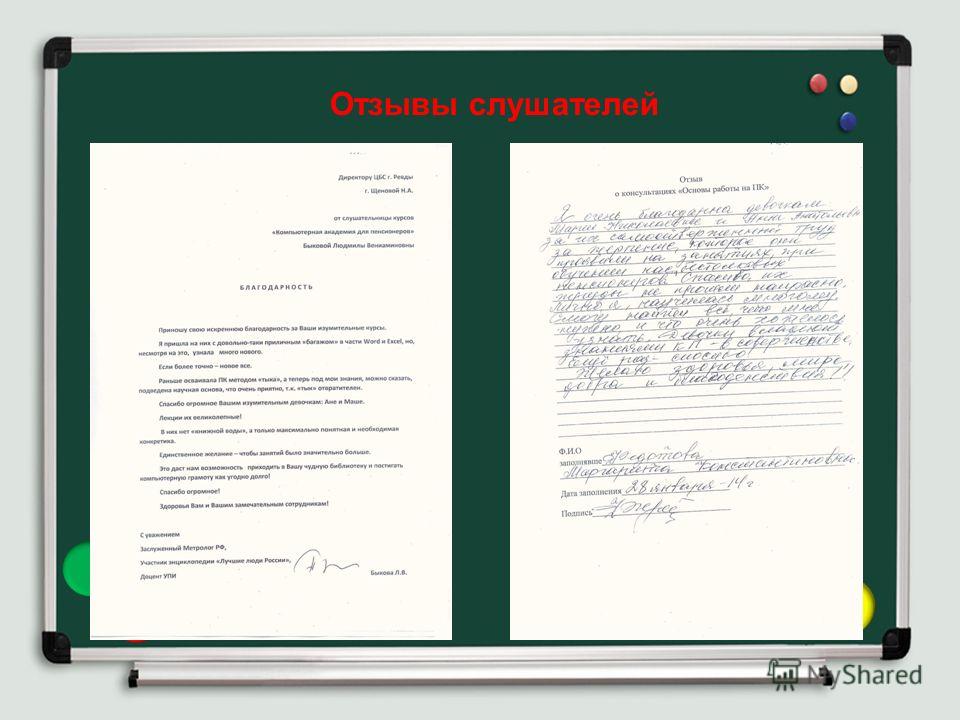 Отзывы слушателей
Директору ЦБС г. Ревды
г. Щеновой Н.А.
от слушательницы курсов
«Компьютерная академия для пенсионеров»
Быковой Людмилы Вениаминовны
БЛАГОДАРНОСТЬ
Приношу свою искреннюю благодарность за Ваши изумительные курсы.
Я пришла на них с довольно-таки приличным «багажом» в части Word и Excel, но,
несмотря на это, узнала много нового.
Если более точно – новое все.
Раньше осваивала ПК методом «тыка», а теперь под мои знания, можно сказать,
подведена научная основа, что очень приятно, т.к. «тык» отвратителен.
Спасибо огромное Вашим изумительным девочкам: Ане и Маше.
Лекции их великолепные!
В них нет «книжной воды», а только максимально понятная и необходимая
конкретика.
Единственное желание – чтобы занятий было значительно больше.
Это даст нам возможность приходить в Вашу чудную библиотеку и постигать
компьютерную грамоту как угодно долго!
Спасибо огромное!
Здоровья Вам и Вашим замечательным сотрудникам!
С уважением
Заслуженный Метролог РФ,
Участник энциклопедии «Лучшие люди России»,
Доцент УПИ
Быкова Л.В.
Отзыв
о консультациях «Основы работы на ПК»
Я очень благодарна девочкам
Марии Николаевне и Анне Анатольевне
за их самоотверженный труд
за терпение, которое они
проявили на занятиях, при
обучении нас, бестолковых
пенсионеров. Спасибо, их
не прошли напрасно,
Лично я, научилась многому.
Смогу найти всё, что мне
нужно и что очень хотелось
узнать. Девочки владеют
знаниями КП - в совершенстве,
Ещё раз - спасибо!
Желаю здоровья, мира
добра и благоденствия!"
Ф.И.О
заполнявшего Федотова
Маргарита Константиновна
Дата заполнения 28 января -14 г
Подпись
MyShared